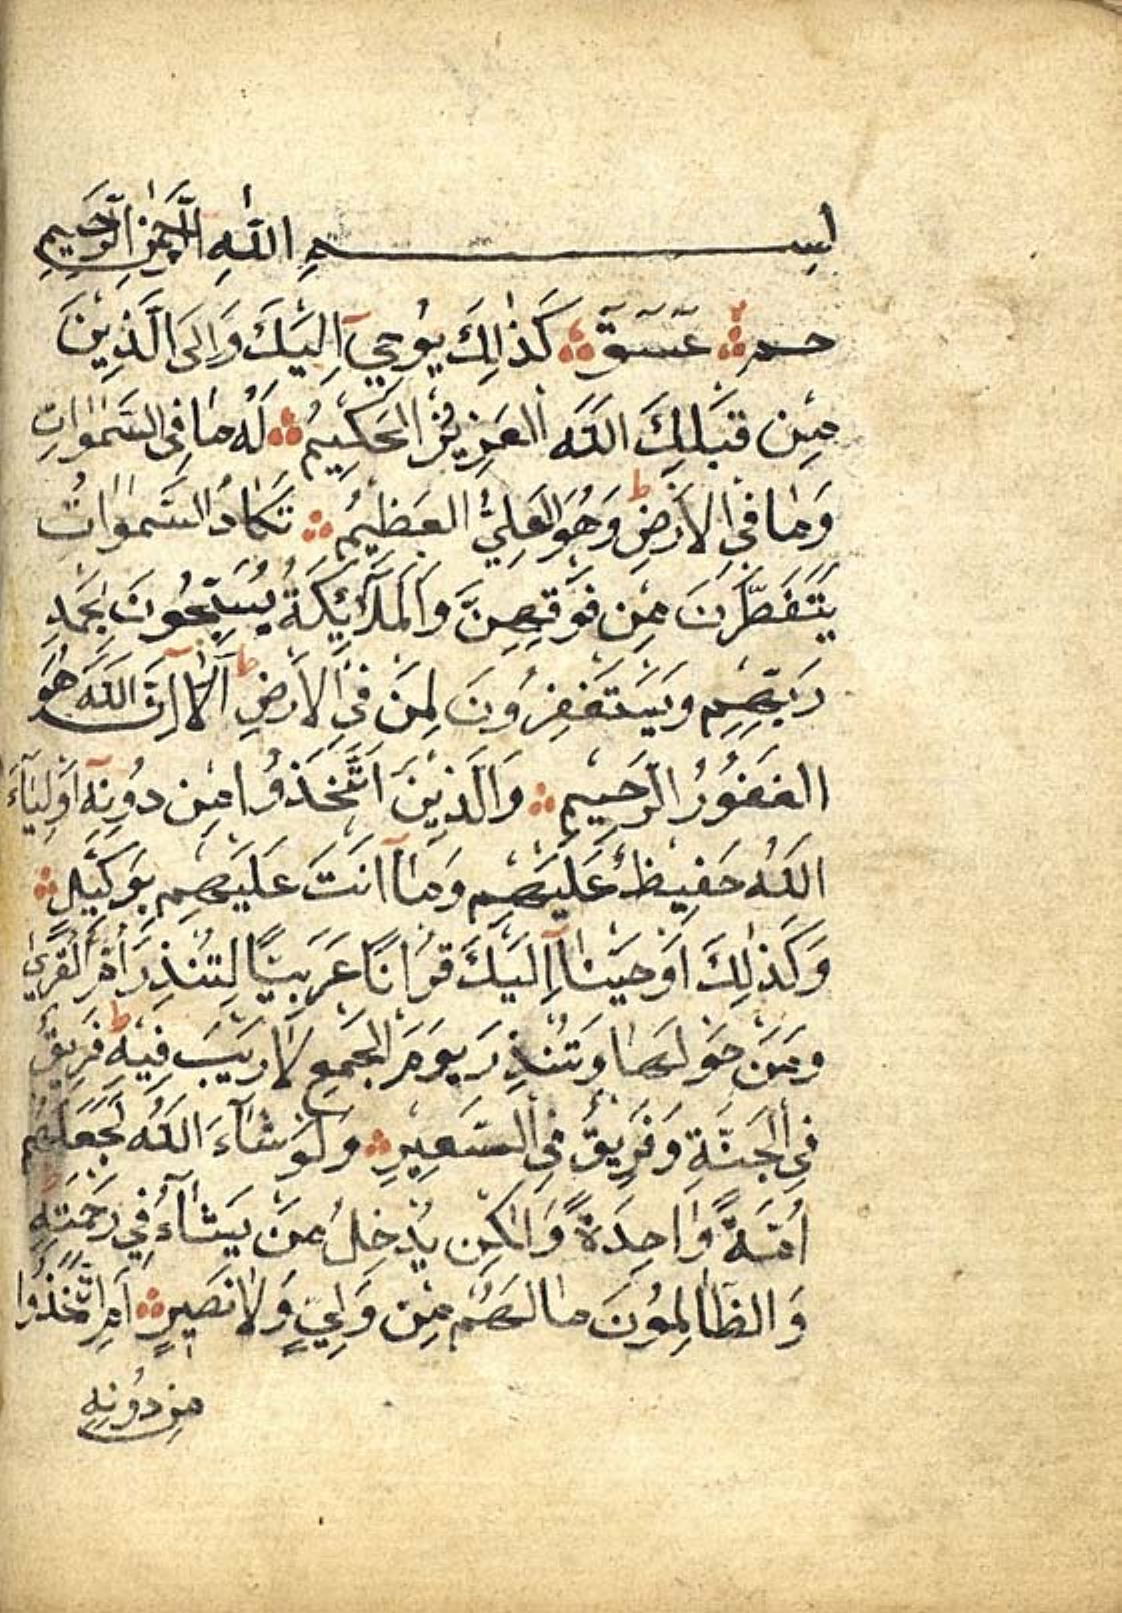 بِسْمِ اللّٰهِ الرَّحْمٰنِ الرَّحِيمِ
حٰمٓ عٓسٓقٓ كَذٰالِكَ يُوْحِيٓ اِلَيْكَ وَاِلَى الَّذِيْنَ
مِنْ قَبْلِكَ اللّٰهُ الْعَزِيْزُ الْحَكِيْمُ لَهُ مَا فِي السَّمٰوٰاتِ
وَمَا فِي الْاَرْضِ ط وَهُوَ الْعَلِيُّ الْعَظِيْمُ تَكَادُ السَّمٰوَاتُ
يَتَفَطَّرْنَ مِنْ فَوْقِهِنَّ وَالْمَلٰٓائِكَةُ يُسَبِّحُوْنَ بِحَمْدِ
رَبِّهِمْ وَيَسْتَغْفِرُوْنَ لِمَنْ فِي الْاَرْضِ ط اَلَآ اِنَّ اللّٰهَ هُوَ
الْغَفُوْرُ الرَّحِيْمِ وَالَّذِيْنَ اتَّخَذُوْا مِنْ دُوْنِهٓ اَوْلِيَآءَ
اللّٰهُ حَفِيْظٌ عَلَيْهِمْ وَمَآ اَنْتَ عَلَيْهِمْ بِوَكِيْلٍ
وَكَذٰلِكَ اَوْحَيْنَآ اِلَيْكَ قُرْاٰنًا عَرَبِيًّا لِتُنْذِرَ اُمَّ الْقُرٰى
وَمَنْ حَوْلَهَا وَتُنْذِرَ يَوْمَ الْجَمْعِ لَا رَيْبَ فِيْهِ ط فَرِيْقٌ
فِي الْجَنَّةِ وَفَرِيْقٌ فِي السَّعِيْرِ وَلَوْ شَآءَ اللّٰهُ لَجَعَلَهُمْ
اُمَّةً وَاحِدَةً وَالٰكِنْ يُدْخِلُ مَنْ يَشَآءُ فِي رَحْمَتِهِ
وَالظَّالِمُوْنَ مَا لَهُمْ مِنْ وَلِيٍّ وَلَا نَصِيْرٍ اَمِ اتَّخَذُوْا
مِنْ دُوْنِهِ